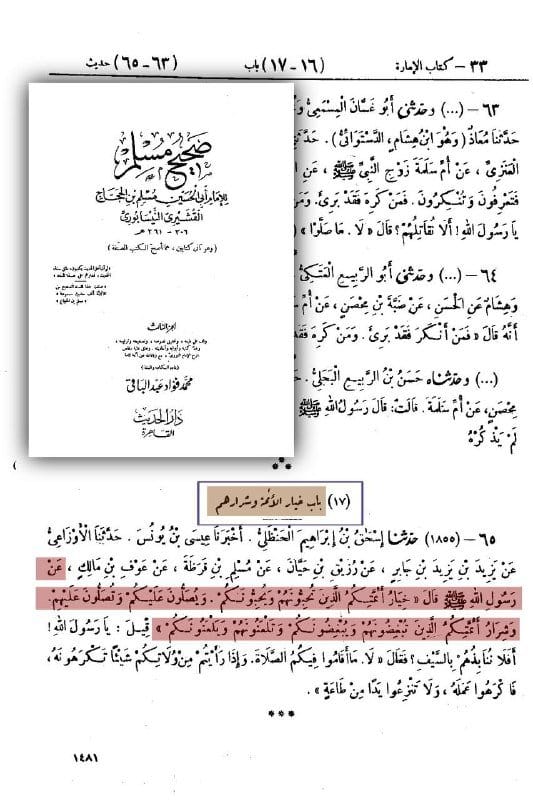 ٣٣ – كتاب الإمارة (١٦ - ١٧) باب (٦٣ - ٦٥) حديث
٦٣ – (...) وحدثني أبو غسان المسمعي
حدثنا معاذ ( وهو ابن هشام، الدستوائي ) .
العنزي ، عن أم سلمة زوج النبي ﷺ ،
فتعرفون وتنكرون . فمن كره فقد برئ .
يا رسول الله ! ألا نقاتلهم ؟ قال « لا . ما صلوا »
٦٤ – (...) وحدثني أبو الربيع العتكي
وهشام عن الحسن ، عن ضبة بن محصن ،
أنه قال « فمن أنكر فقد برئ . ومن كره
(...) وحدثناه حسن بن الربيع البجلي .
محصن، عن أم سلمة . قالت: قال رسول الله ﷺ
لم يذكره
صحيح مسلم
للإمام أبي الحسين مسلم بن الحجاج
القشيري النيسابوري
٢٠٦ - ٢٦١ هـ
الجزء الثالث
محمد فؤاد عبد الباقي
دار الحديث
القاهرة
(١٧) باب خيار الأئمة وشرارهم
٦٥ – (١٨٥٥) حدثنا إسحٰق بن إبراهيم الحنظلي . أخبرنا عيسى بن يونس . حدثنا الأوزاعي
عن يزيد بن يزيد بن جابر ، عن رزيق بن حيان ، عن مسلم بن قرظة ، عن عوف بن مالك ، عن
رسول الله ﷺ قال « خِيَارُ أَئِمَّتِكُمُ الَّذِينَ تُحِبُّونَهُمْ وَيُحِبُّونَكُمْ . وَيُصَلُّونَ عَلَيْكُمْ وَتُصَلُّونَ عَلَيْهِمْ .
وَشِرَارُ أَئِمَّتِكُمُ الَّذِينَ تُبْغِضُونَهُمْ وَيُبْغِضُونَكُمْ وَتَلْعَنُونَهُمْ وَيَلْعَنُونَكُمْ » قيل : يا رسول الله !
أفلا ننابذهم بالسيف ؟ فقال « لا . ما أقاموا فيكم الصلاة . وإذا رأيتم من ولاتكم شيئا تكرهونه ،
فاكرهوا عمله ، ولا تنزعوا يدا من طاعة » .
١٤٨١